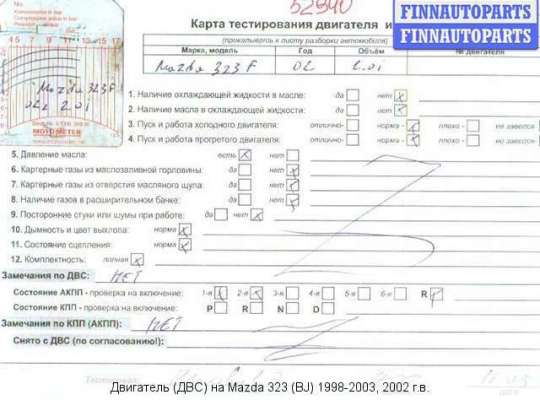 52940
FINNAUTOPARTS
FINNAUTOPARTS
Карта тестирования двигателя и
(прикалывать к листу разборки автомобиля)
Марка, модель Год Объём № двигателя
Mazda 323 F 02 2.0i
4 5 7 9 11 13 15 17
Mazda 323 F
02г 2.0i
MOTOMETER
1. Наличие охлаждающей жидкости в масле: да нет x
2. Наличие масла в охлаждающей жидкости: да нет x
3. Пуск и работа холодного двигателя: отлично- норма - x плохо - не завелся
4. Пуск и работа прогретого двигателя: отлично- норма - x плохо - не завелся
5. Давление масла: есть x нет
6. Картерные газы из маслозаливной горловины: да нет x
7. Картерные газы из отверстия масляного щупа: да нет x
8. Наличие газов в расширительном бачке: да нет x
9. Посторонние стуки или шумы при работе: да нет x
10. Дымность и цвет выхлопа: норма x
11. Состояние сцепления: норма x
12. Комплектность: полная x
Замечания по ДВС: НЕТ
Состояние АКПП - проверка на включение: 1-я x 2-я x 3-я 4-я 5-я 6-я R x
Состояние КПП - проверка на включение: P R N D
Замечания по КПП (АКПП): НЕТ
Снято с ДВС (по согласованию!):
Двигатель (ДВС) на Mazda 323 (BJ) 1998-2003, 2002 г.в.